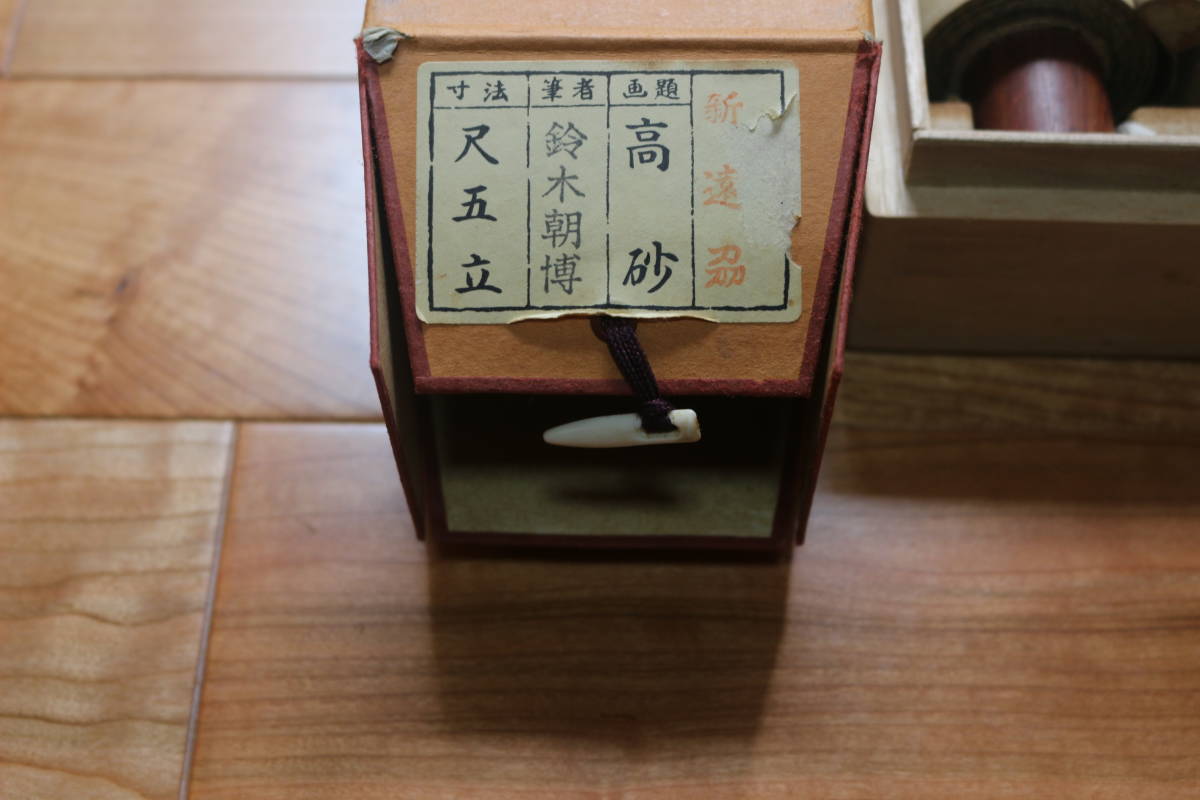 新遠忍
画題
高砂
筆者
鈴木朝博
寸法
尺五立